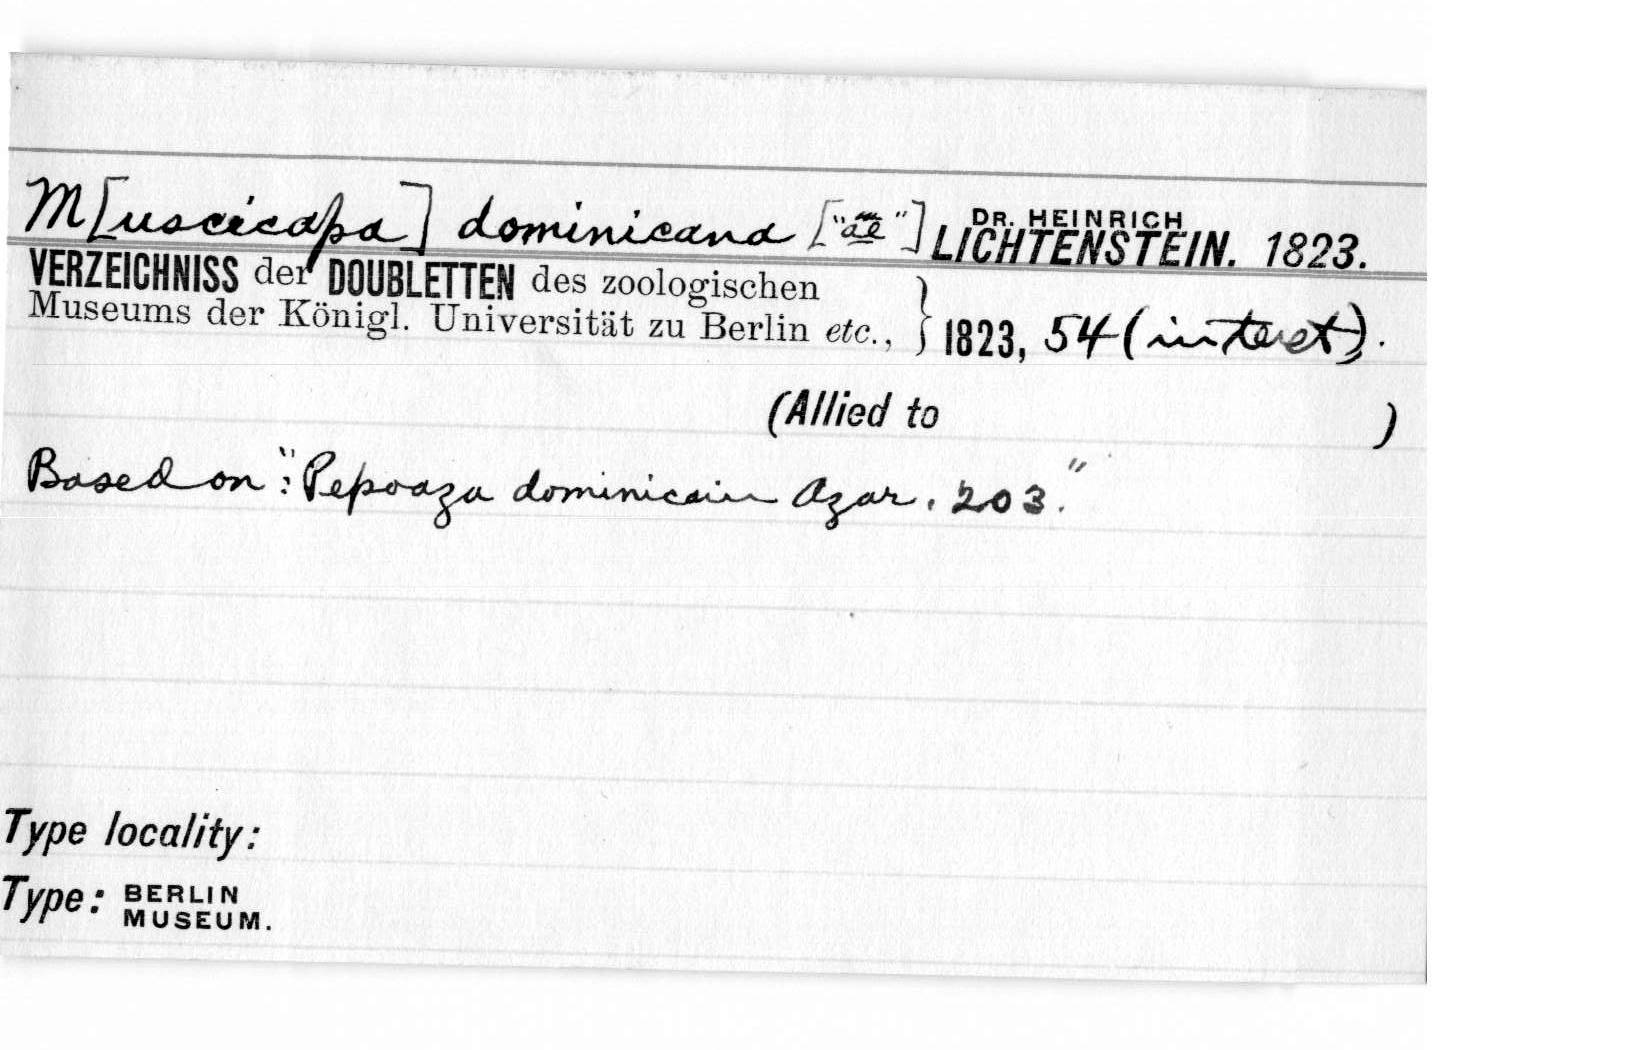 M[uscicapa] dominicana ["ae"] DR. HEINRICH LICHTENSTEIN. 1823.
VERZEICHNISS der DOUBLETTEN des zoologischen
Museums der Königl. Universität zu Berlin etc., } 1823, 54 (in text).
(Allied to )
Based on: "Pepoaza dominicain Azar. 203."
Type locality:
Type: BERLIN MUSEUM.